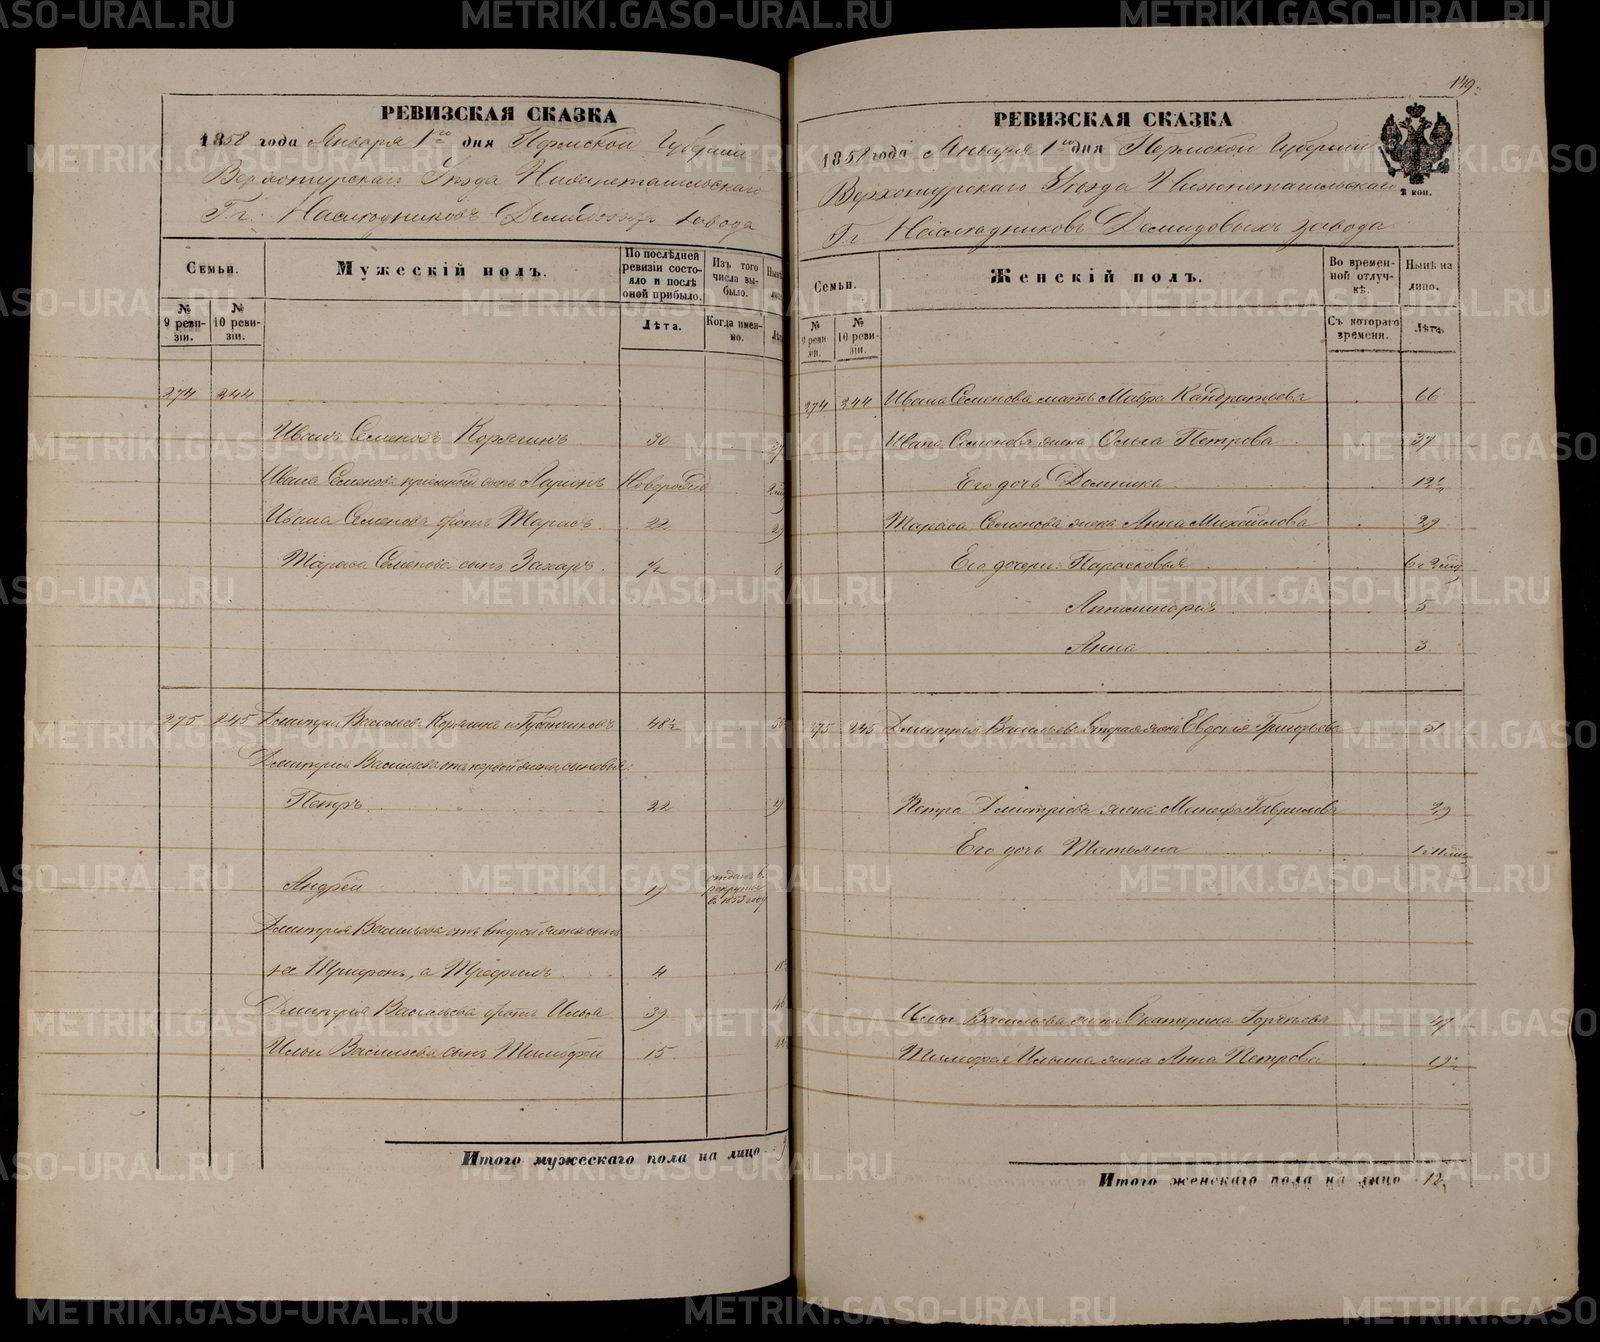 РЕВИЗСКАЯ СКАЗКА
1858 года Января 1го дня Пермской Губерніи
Верхотурскаго Уѣзда Нижнетагильскаго
Гг. Наслѣдниковъ Демидовыхъ завода
Семьи.
Мужескій полъ.
По послѣдней ревизіи состояло и послѣ оной прибыло.
Изъ того числа выбыло.
№ 9 ревизіи.
№ 10 ревизіи.
Лѣта.
Когда именно.
274 244
Иванъ Семеновъ Корягинъ 30
Ивана Семенова пріемный сынъ Ларіонъ Новорожд
Ивана Семенова братъ Тарасъ 22
Тараса Семенова сынъ Захаръ 1/2
275 245 Дмитрій Васильевъ Корягинъ и Губанчиковъ 48½
Дмитрія Васильева отъ первой жены сыновья:
Петръ 22 29
Андрей 19 отданъ въ рекруты въ 1853 году
Дмитрія Васильева отъ второй жены сынъ
не Трифонъ, а Трефилъ 4
Дмитрія Васильева братъ Илья 39 46
Ильи Васильева сынъ Тимофей 15
Итого мужескаго пола на лицо
149.
РЕВИЗСКАЯ СКАЗКА
1858 года Января 1го дня Пермской Губерніи
2 коп.
Верхотурскаго Уѣзда Нижнетагильскаго
Гг. Наслѣдниковъ Демидовыхъ завода
Семьи.
Женскій полъ.
Во временной отлучкѣ.
Нынѣ на лицо.
№ 9 ревизіи.
№ 10 ревизіи.
Съ котораго времени.
Лѣта.
274 244 Ивана Семенова мать Мавра Кандратьева 66
Ивана Семенова жена Ольга Петрова 37
Его дочь Домника 12½
Тараса Семенова жена Анна Михайлова 29
Его дочери: Парасковья
Апполинарія 5
Анна 3
275 245 Дмитрія Васильева вторая жена Евдокія Григорьева 51
Петра Дмитріева жена Манефа Гаврилова 29
Его дочь Татьяна
Ильи Васильева жена Екатерина Гордѣева 47
Тимофея Ильина жена Анна Петрова 19½
Итого женскаго пола на лицо 12.
METRIKI.GASO-URAL.RU